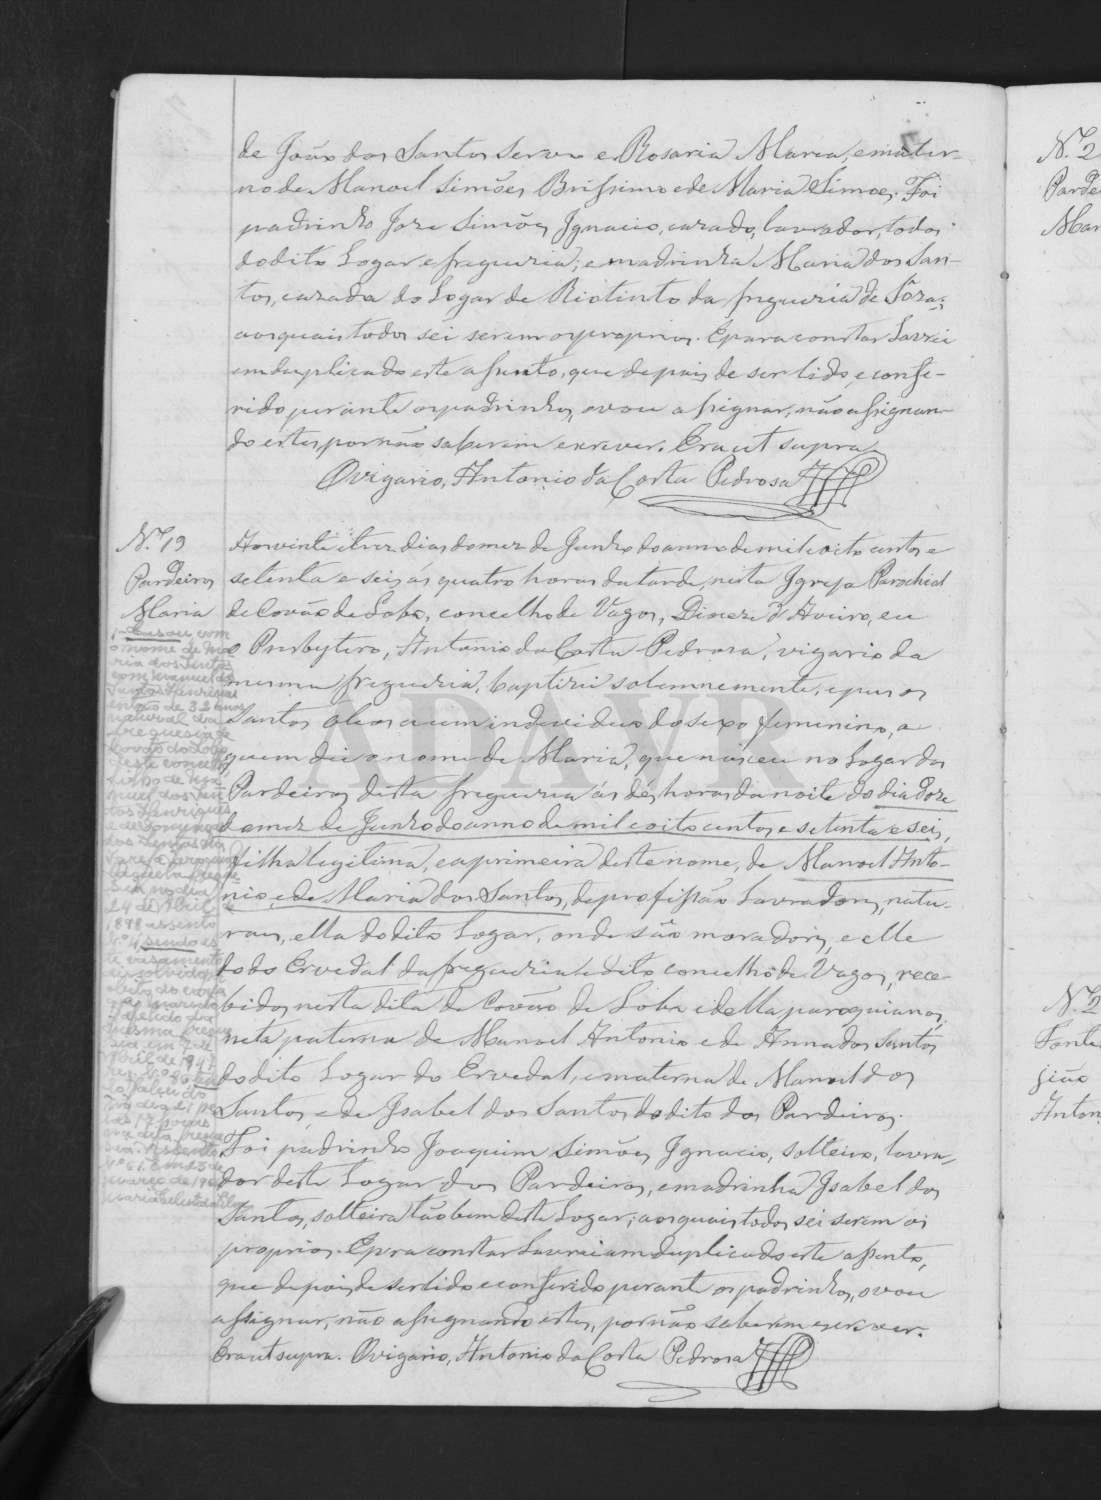 de João dos Santos Servo e Rosaria Maria, e mater-
no de Manoel Simões Briſsimo e de Maria Simões. Foi
padrinho Joze Simões Ignacio, cazado, lavrador, todos
do dito Logar e freguezia; e madrinha Maria dos San-
tos, cazada do Logar de Riotinto da freguezia de Sôza;
aos quais todos sei serem os proprios. E para constar Lavrei
em duplicado este aſsento, que depois de ser lido, e confe-
rido perante os padrinhos, o vou aſsignar, não aſsignan-
do estes, por não saberem escrever. Era ut supra
O vigario, Antonio da Costa Pedrosa
N.º 19
Pardeiros
Maria
Aos vinte e trez dias do mez de Junho do anno de mil oito centos e
setenta e seis, ás quatro horas da tarde, nesta Igreja Parochial
de Covão do Lobo, concelho de Vagos, Diocese d'Aveiro, eu
o Presbytero, Antonio da Costa Pedrosa, vigario da
mesma freguezia, baptizei solemnemente, e puz os
Santos oleos a um individuo do sexo feminino, a
quem dei o nome de Maria, que nasceu no Logar dos
Pardeiros desta freguezia ás dés horas da noite do dia doze
do mez de Junho do anno de mil e oito centos e setenta e seis,
filha legitima, e a primeira deste nome, de Manoel Anto-
nio, e de Maria dos Santos, de profiſsão Lavradores, natu-
raes, ella do dito Logar, onde são moradores, e elle
do do Ervedal da freguezia e dito concelho de Vagos, rece-
bidos nesta dita de Covão do Lobo e della paroquianos,
neta paterna de Manoel Antonio e de Anna dos Santos
do dito Logar do Ervedal, e materna de Manoel dos
Santos, e de Isabel dos Santos do dito dos Pardeiros.
Foi padrinho Joaquim Simões Ignacio, solteiro, lavra-
dor deste Logar dos Pardeiros, e madrinha Isabel dos
Santos, solteira tão bem deste Logar; aos quais todos sei serem os
proprios. E pra constar Lavrei em duplicado este aſsento,
que depois de ser lido e conferido perante os padrinhos, o vou
aſsignar, não aſsignando estes, por não saberem escrever.
Era ut supra. O vigario, Antonio da Costa Pedrosa
1- Casou com
o nome de Ma-
ria dos Santos
com Manuel dos
Santos Henriques
então de 32 anos
natural da
freguesia de
Covão do Lobo,
deste concelho,
filho de Ma-
nuel dos San-
tos Henriques
e de
dos Santos
no dia
24 de Abril de
1898 assento
nº 4, sendo es-
te casamento
dissolvido por
obito do
marido
falecido na
mesma fregue-
sia em 7 de
Abril de 1941
ADAVR
N.º 2
Parde
Mar
N.º 2
Fonte
gião
Anton